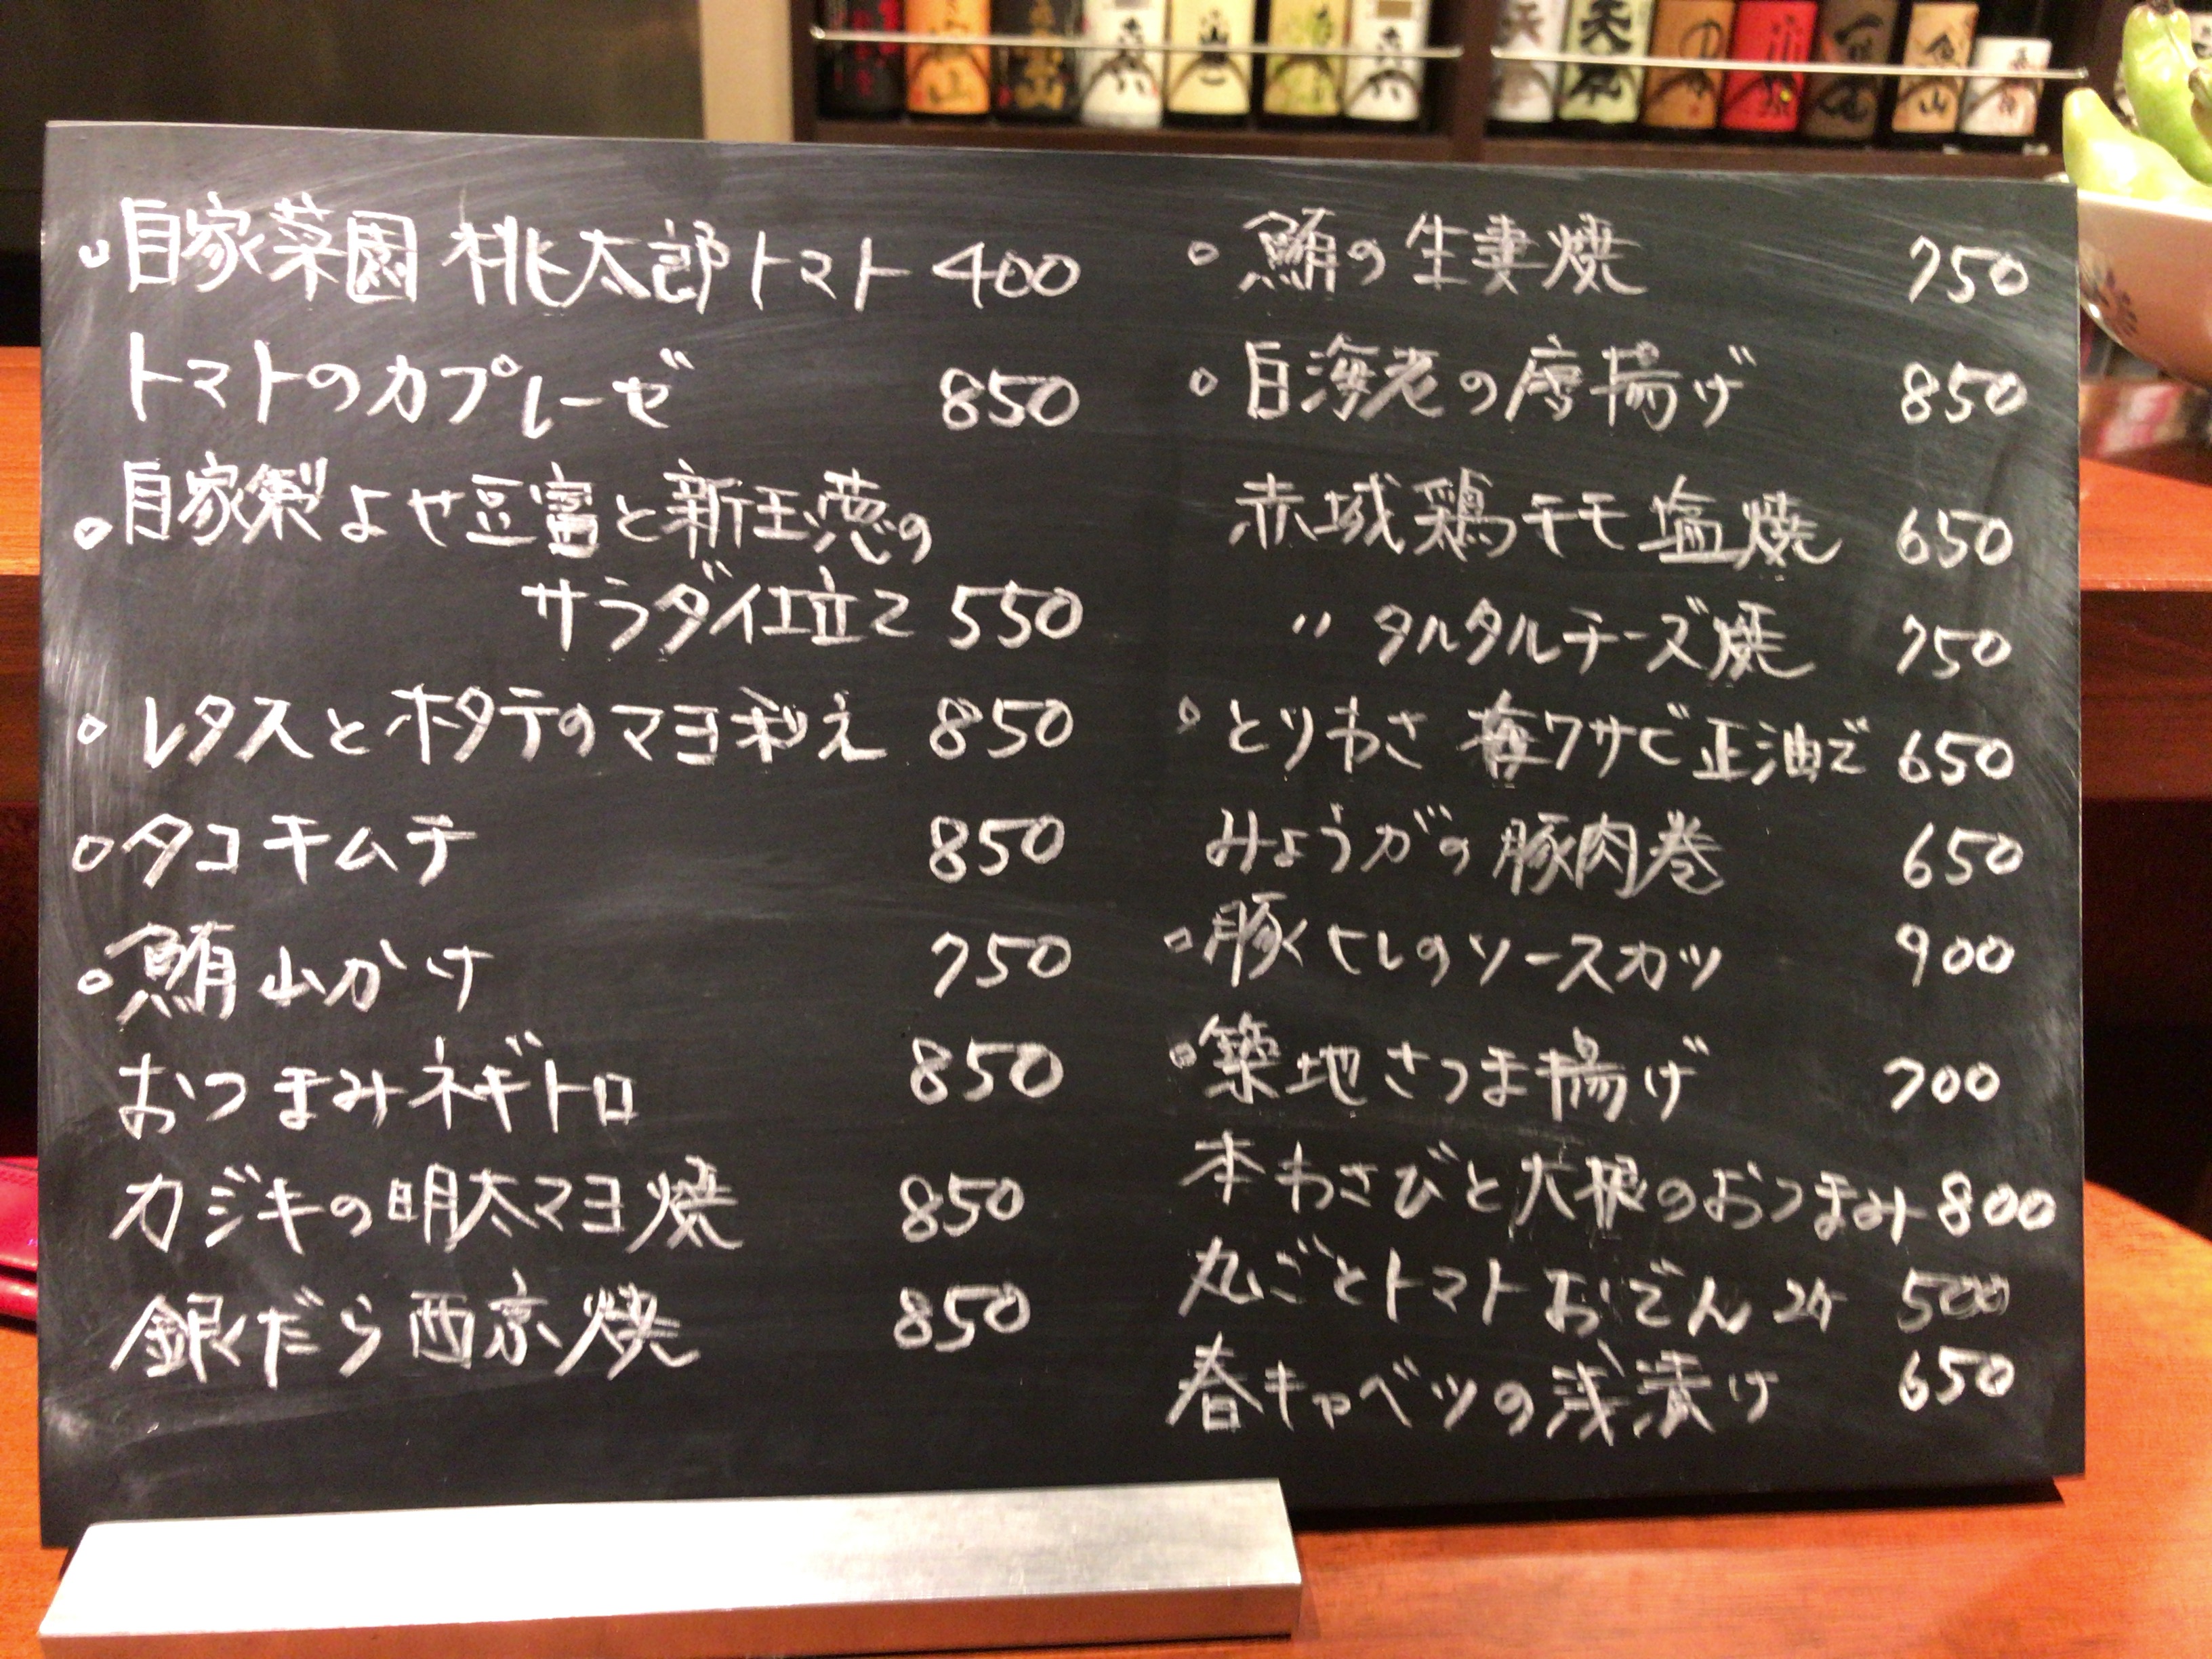 自家菜園 桃太郎トマト 400
トマトのカプレーゼ 850
自家製よせ豆富と新玉葱の
サラダ仕立て 550
レタスとホタテのマヨ和え 850
タコキムチ 850
鮪山かけ 750
おつまみネギトロ 850
カジキの明太マヨ焼 850
銀だら西京焼 850
鮪の生姜焼 750
白海老の唐揚げ 850
赤城鶏モモ塩焼 650
〃 タルタルチーズ焼 750
とりわさ 梅ワサビ正油で 650
みょうがの豚肉巻 650
豚くしのソースカツ 900
築地さつま揚げ 700
本わさびと大根のおつまみ 800
丸ごとトマトおでん 2ケ 500
春キャベツの浅漬け 650